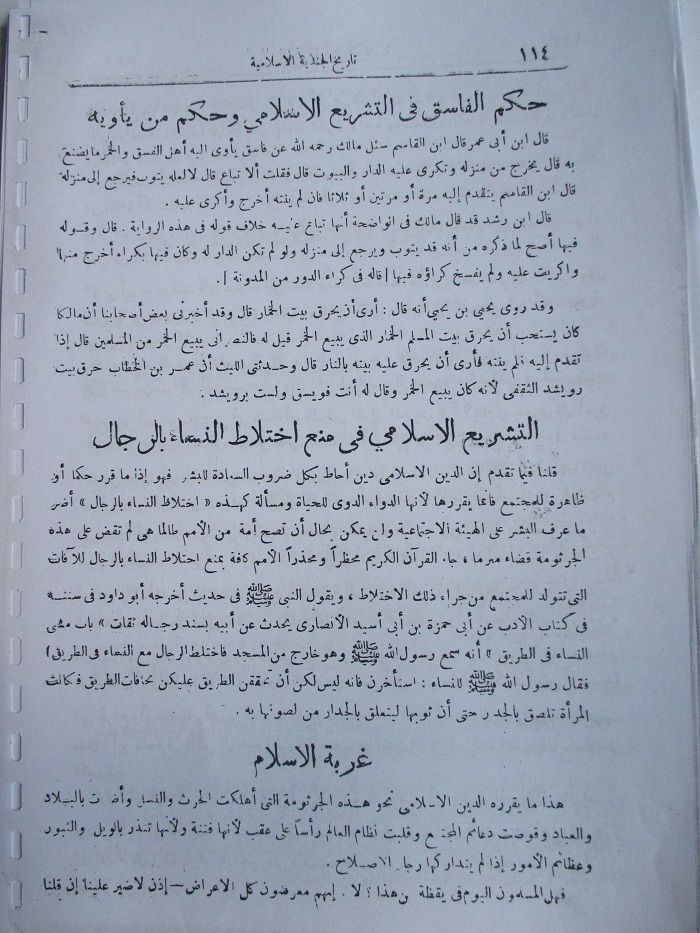 ١١٤
تاريخ الجنايات الاسلامية
حكم الفاسق فى التشريع الاسلامي وحكم من يأويه
قال ابن أبى عمر قال ابن القاسم سئل مالك رحمه الله عن فاسق يأوى اليه أهل الفسق والخمر ما يصنع
به قال يخرج من منزله وتكرى عليه الدار والبيوت قال فقلت ألا تباع قال لا لعله يتوب فيرجع إلى منزله
قال ابن القاسم يتقدم إليه مرة أو مرتين أو ثلاثا فان لم ينته أخرج وأكرى عليه .
قال ابن رشد قد قال مالك فى الواضحة أنها تباع عليه خلاف قوله فى هذه الرواية . قال وقوله
فيها أصح لما ذكره من أنه قد يتوب ويرجع إلى منزله ولو لم تكن الدار له وكان فيها بكراء أخرج منها
واكريت عليه ولم يفسخ كراؤه فيها [ قاله فى كراء الدور من المدونة ] .
وقد روى يحيى بن يحيى أنه قال : أرى أن يحرق بيت الخمار قال وقد أخبرنى بعض أصحابنا أن مالكا
كان يستحب أن يحرق بيت المسلم الخمار الذى يبيع الخمر قيل له فالنصرانى يبيع الخمر من المسلمين قال إذا
تقدم إليه فلم ينته فأرى أن يحرق عليه بيته بالنار قال وحدثنى الليث أن عمر بن الخطاب حرق بيت
رويشد الثقفى لأنه كان يبيع الخمر وقال له أنت فويسق ولست برويشد .
التشريع الاسلامي فى منع اختلاط النساء بالرجال
قلنا فيما تقدم إن الدين الاسلامى دين أحاط بكل ضروب السعادة للبشر فهو إذا ما قرر حكما أو
ظاهرة للمجتمع فانما يقررها لأنها الدواء الدوى للحياة ومسألة كهذه « اختلاط النساء بالرجال » أضر
ما عرف البشر على الهيئة الاجتماعية ولن يمكن بحال أن تصح أمة من الأمم طالما هى لم تقض على هذه
الجرثومة قضاء مبرما ، جاء القرآن الكريم محظراً ومحذراً الأمم كافة بمنع اختلاط النساء بالرجال للآفات
التى تتولد للمجتمع من جراء ذلك الاختلاط ، ويقول النبى ﷺ فى حديث أخرجه أبو داود فى سننه
فى كتاب الأدب عن أبى حمزة بن أبى أسيد الأنصارى يحدث عن أبيه بسند رجاله ثقات » باب مشى
النساء فى الطريق » أنه سمع رسول الله ﷺ وهو خارج من المسجد فاختلط الرجال مع النساء فى الطريق )
فقال رسول الله ﷺ للنساء : استأخرن فانه ليس لكن أن تحققن الطريق عليكن بحافات الطريق فكانت
المرأة تلصق بالجدار حتى أن ثوبها ليتعلق بالجدار من لصوقها به .
غربة الاسلام
هذا ما يقرره الدين الاسلامى نحو هذه الجرثومة التى أهلكت الحرث والنسل وأضرت بالبلاد
والعباد وقوضت دعائم المجتمع وقلبت نظام العالم رأساً على عقب لأنها فتنة ولأنها تنذر بالويل والثبور
وعظائم الأمور إذا لم يتداركها رجال الاصلاح .
فهل المسلمون اليوم فى يقظة من هذا ؟ لا . إنهم معرضون كل الاعراض — إذن لاضير علينا إن قلنا